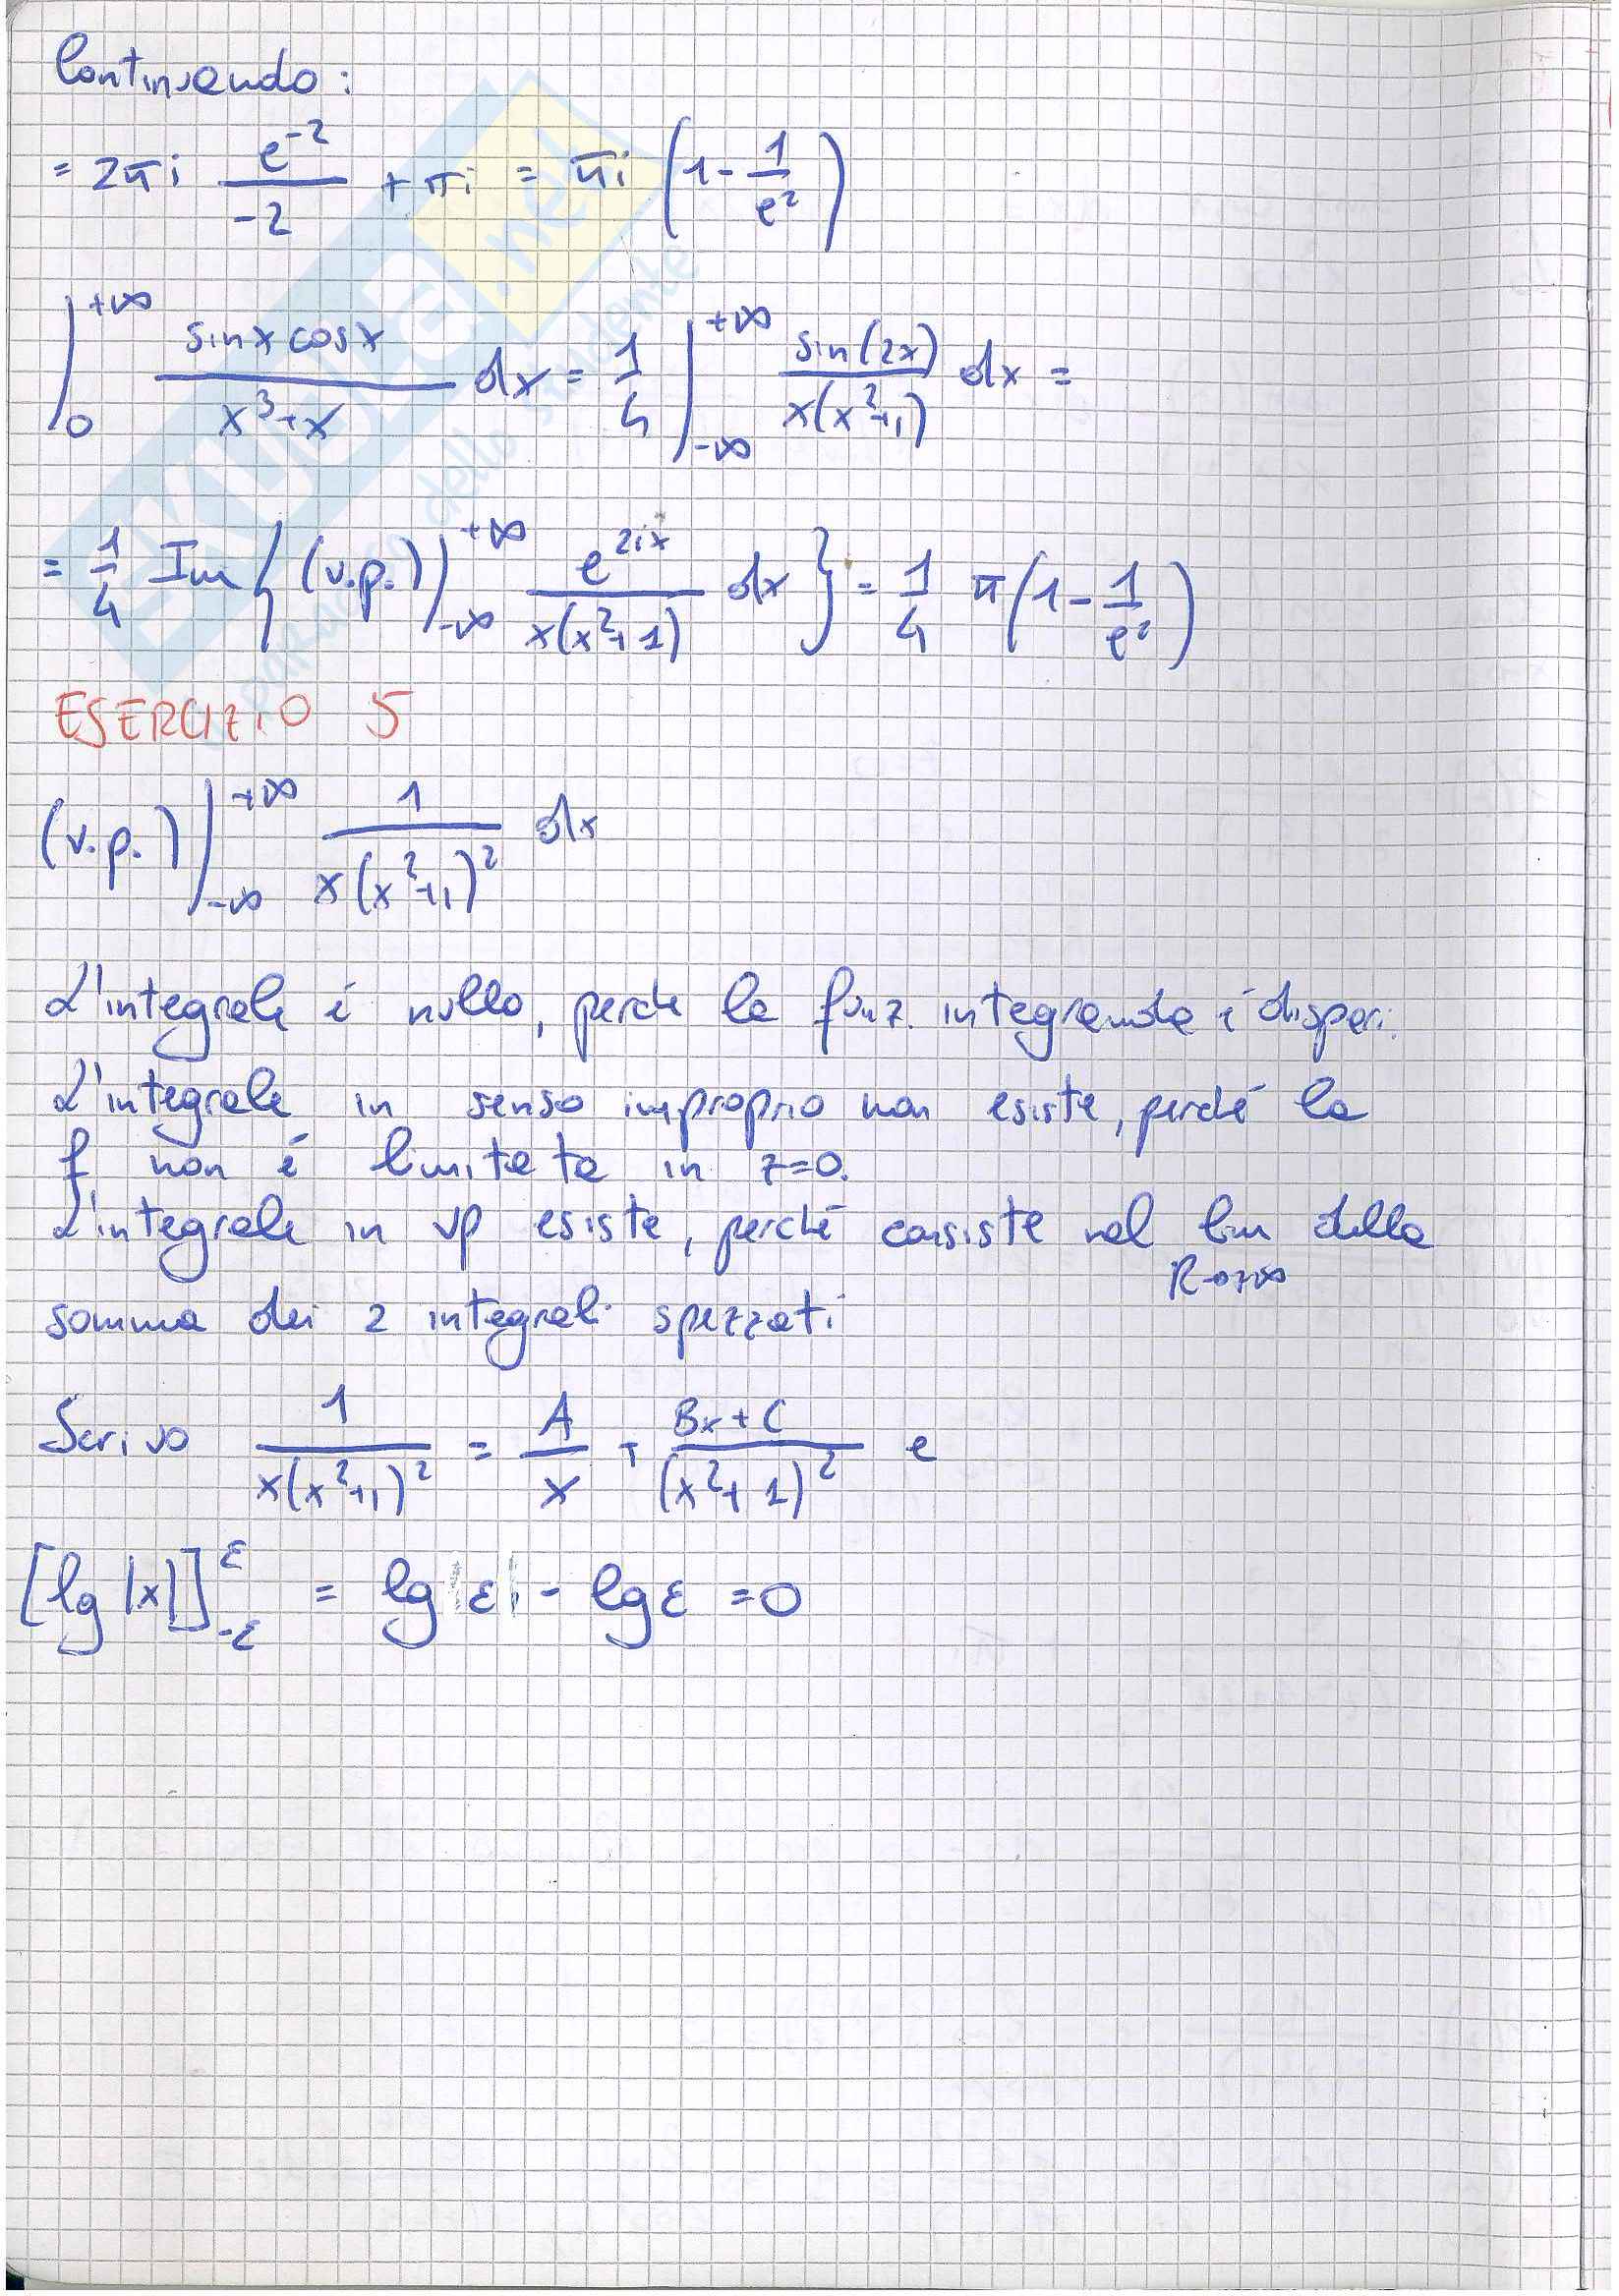 Continuando:
= 2πi e^-2 / -2 + πi = πi (1 - 1/e²)
∫_0^+∞ sinx cosx / x³+x dx = 1/4 ∫_-∞^+∞ sin(2x) / x(x²+1) dx =
= 1/4 Im { (v.p.) ∫_-∞^+∞ e^2ix / x(x²+1) dx } = 1/4 π (1 - 1/e²)
ESERCIZIO 5
(v.p.) ∫_-∞^+∞ 1 / x(x²+1)² dx
L'integrale è nullo, perche la funz. integranda è dispari.
L'integrale in senso improprio non esiste, perché la
f non è limitata in z=0.
L'integrale in vp esiste, perché consiste nel lim R→+∞ della
somma dei 2 integrali spezzati
Scrivo 1 / x(x²+1)² = A/x + Bx+C / (x²+1)² e
[lg |x|]_-ε^ε = lg |ε| - lg ε = 0
SKUOLA.net